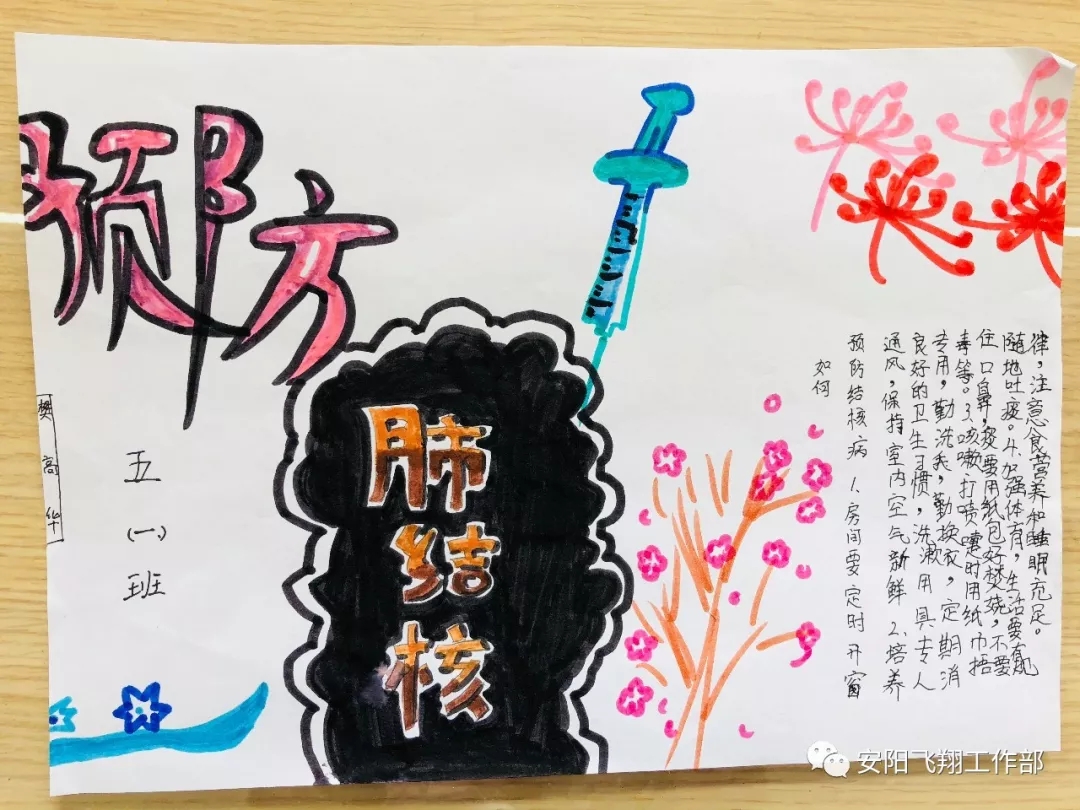 预防
肺结核
樊高华
五(一)班
如何
预防结核病 1.房间要定时开窗
通风,保持室内空气新鲜 2.培养
良好的卫生习惯,洗漱用具专人
专用,勤洗手,勤换衣,定期消
毒等。3.咳嗽打喷嚏时用纸巾捂
住口鼻,痰要用纸包好焚烧,不要
随地吐痰。4.加强体育,生活要有规
律,注意食营养和睡眠充足。
安阳飞翔工作部